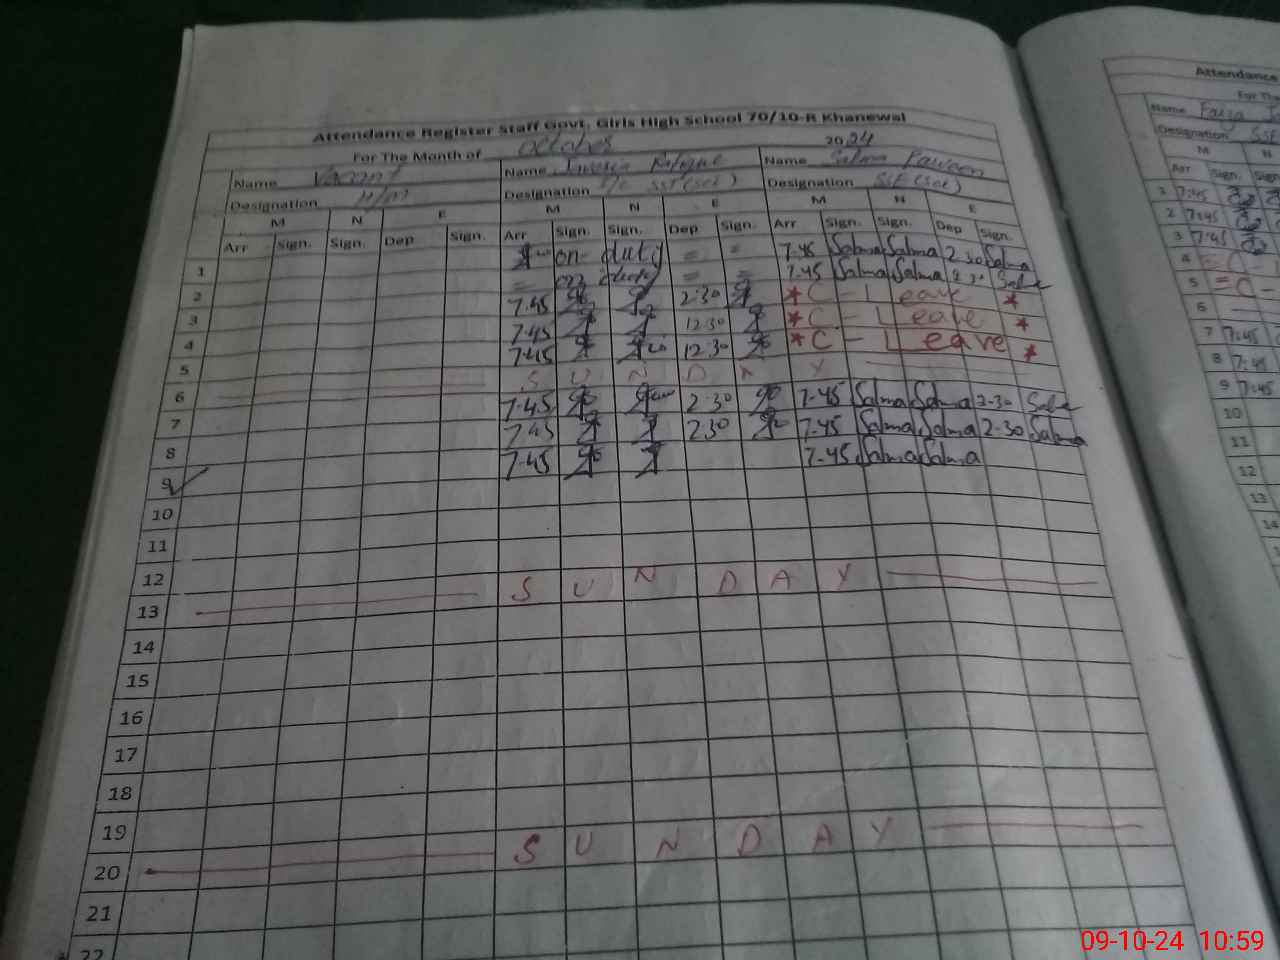 Attendance Register Staff Govt. Girls High School 70/10-R Khanewal
For The Month of October 2024
Name Vacant Name Name Salma Parveen
Designation H/M Designation I/C SST(Sci) Designation SST(Sci)
M N E M N E M N E
Arr Sign. Sign. Dep Sign. Arr Sign. Sign. Dep Sign. Arr Sign. Sign. Dep Sign.
1 on duty = = 7-45 Salma Salma 2 30 Salma
2 = on duty = = 7-45 Salma Salma 2 30 Salma
3 7.45 2:30 * C - Leave *
4 7.45 12:30 * C - Leave *
5 7.45 12:30 * C - Leave *
6 S U N D A Y
7 7.45 2:30 7-45 Salma Salma 2-30 Salma
8 7.45 230 7-45 Salma Salma 2-30 Salma
9 7.45 7-45 Salma Salma
10
11
12
13 S U N D A Y
14
15
16
17
18
19
20 S U N D A Y
21
22
Attendance
For The
Name Faiza
Designation SSE
M N
Arr Sign. Sign.
1 7:45
2 7:45
3 7:45
4 = C -
5 = C -
6
7 7:45
8 7:45
9 7:45
10
11
12
13
14
09-10-24 10:59